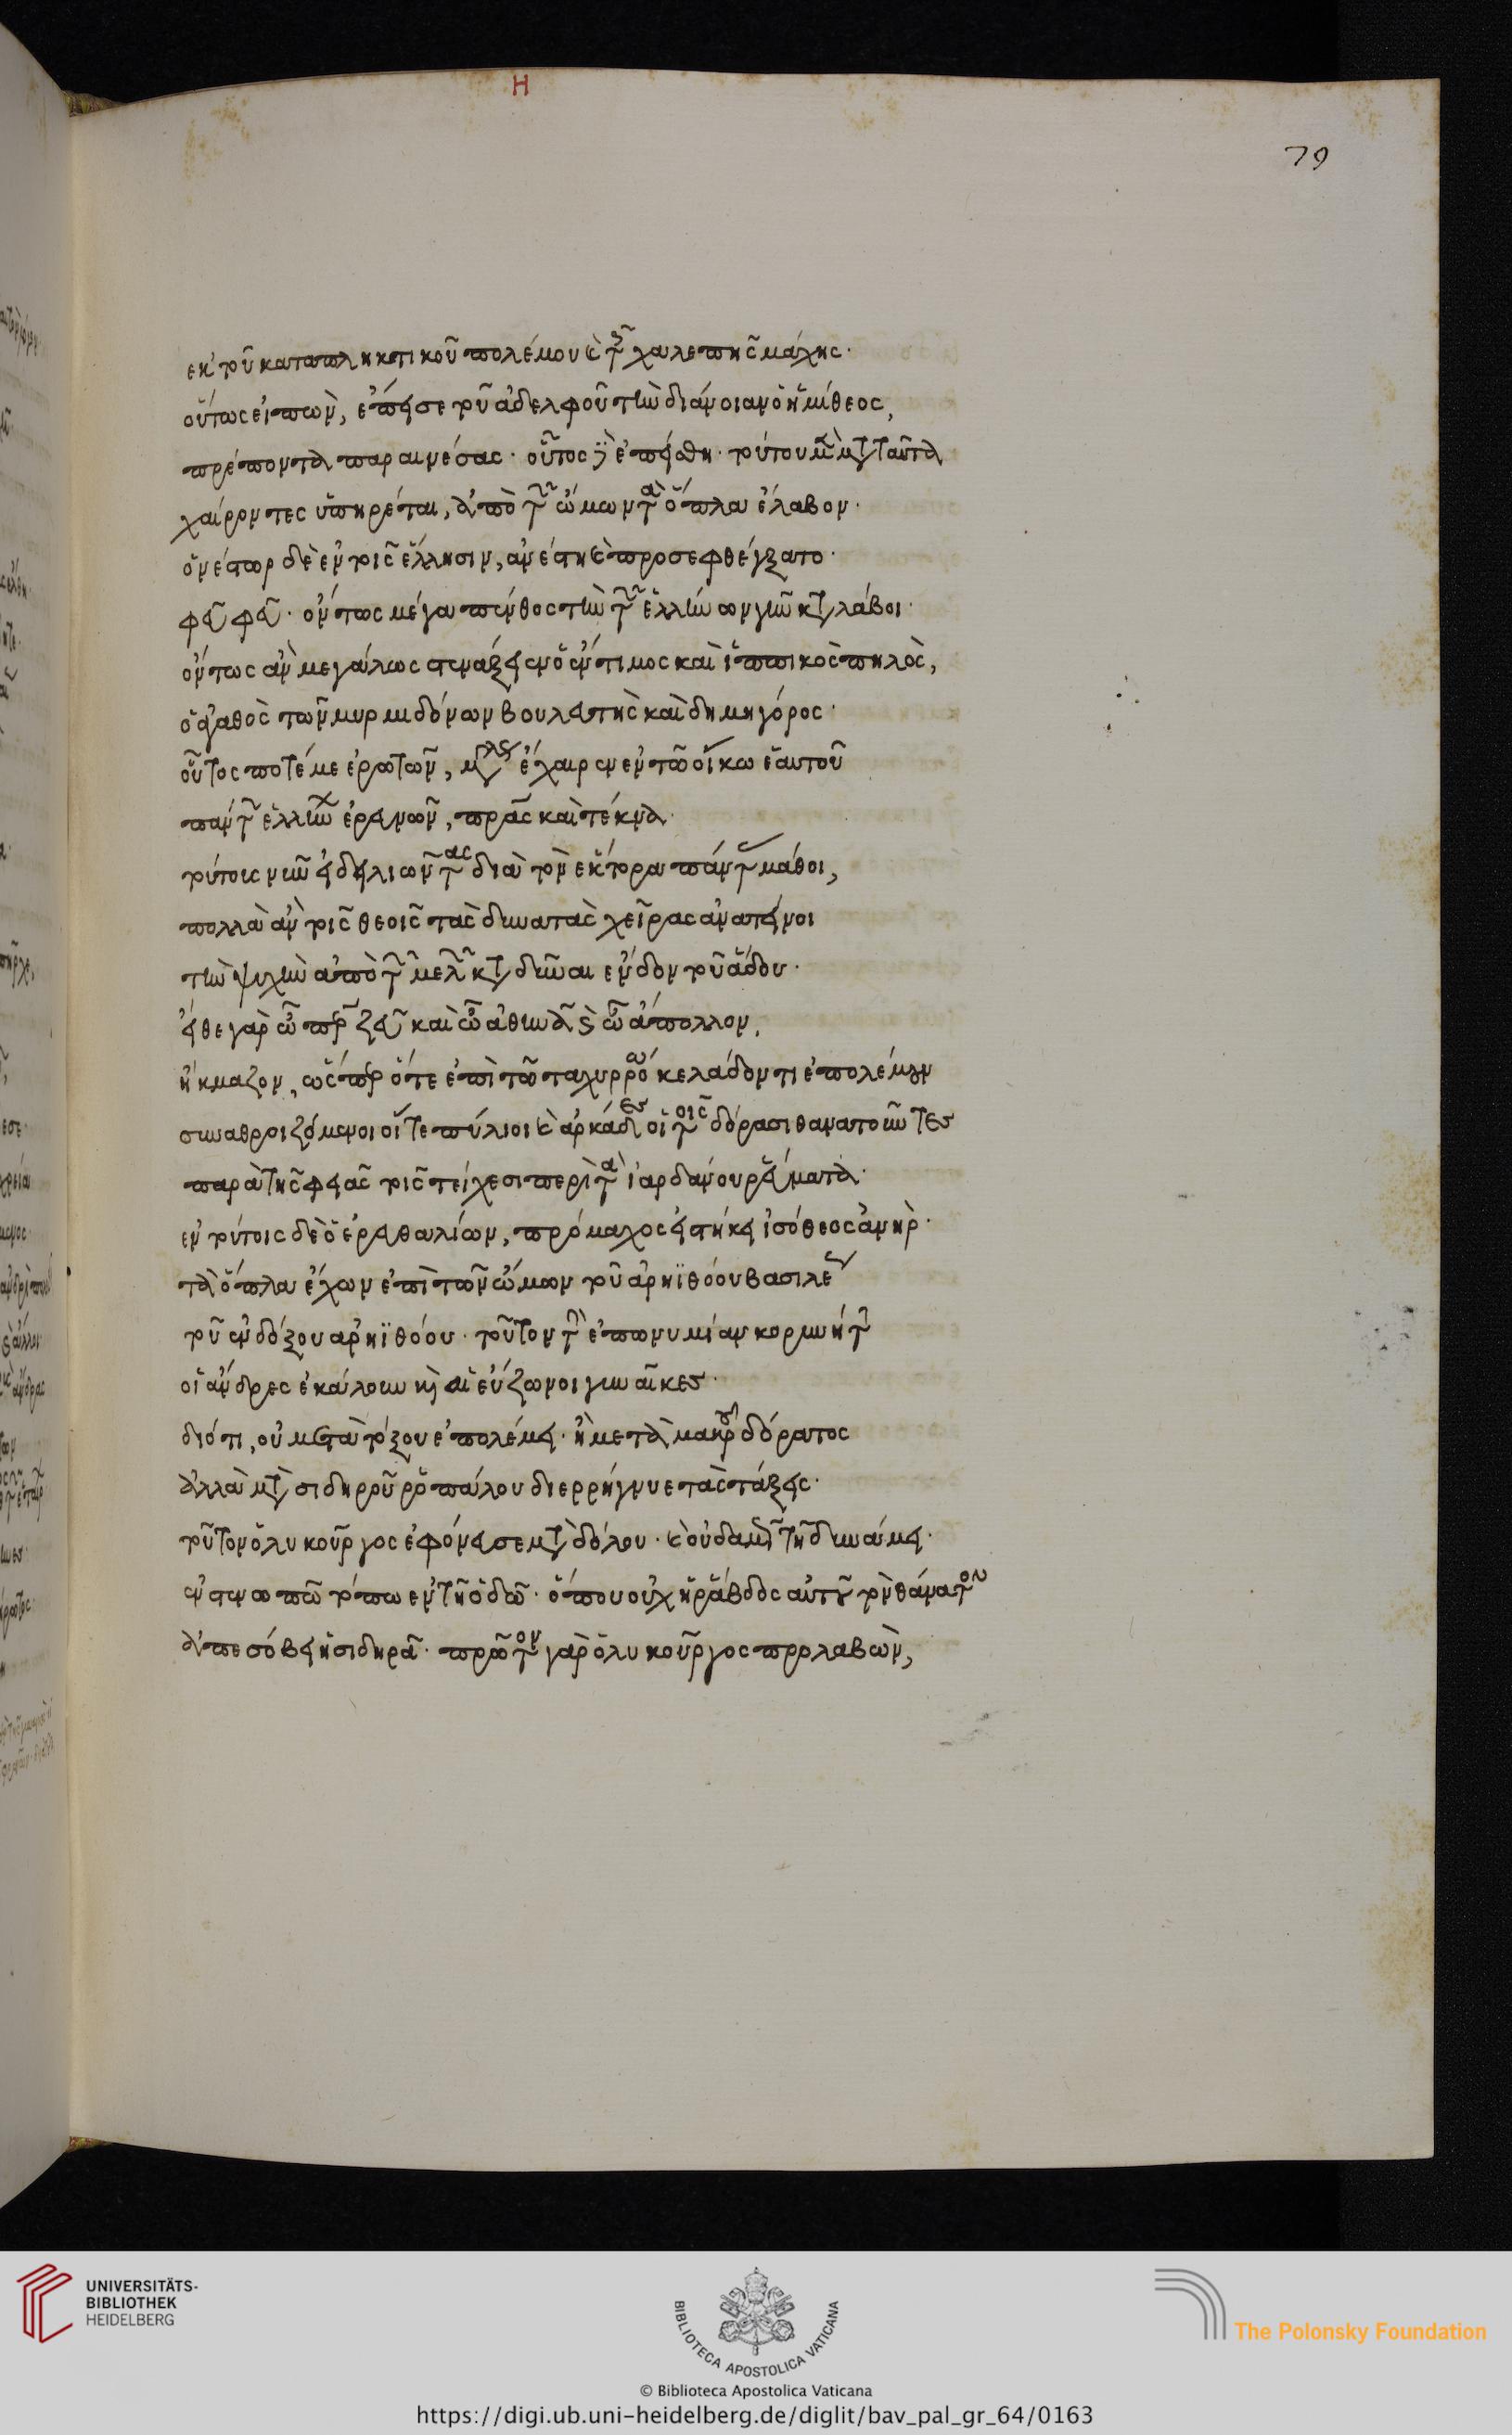 Η
79
ἐκ τοῦ καταπληκτικοῦ πολέμου καὶ τῆς χαλεπῆς μάχης·
οὕτως εἰπὼν, ἔπεισε τοῦ ἀδελφοῦ τὴν διάνοιαν ὁ ἡμίθεος,
πρέποντα παραινέσας· οὗτος δὲ ἐπείσθη· τούτου μὲν μετὰ ταῦτα
χαίροντες ὑπηρέται, ἀπὸ τῶν ὤμων τὰ ὅπλα ἔλαβον·
ὁ νέστωρ δὲ ἐν τοῖς ἕλλησιν, ἀνέστη καὶ προσεφθέγξατο·
φεῦ φεῦ· ὄντως μέγα πένθος τὴν τῶν ἑλλήνων γῆν καταλάβοι·
ὄντως ἂν μεγάλως στενάξειεν ὁ ἔντιμος καὶ ἱππικὸς πηλὸς,
ὁ ἀγαθὸς τῶν μυρμιδόνων βουλευτὴς καὶ δημηγόρος·
οὗτος ποτέ με ἐρωτῶν, μεγάλως ἔχαιρεν ἐν τῶ οἴκω ἑαυτοῦ
πάντων ἑλλήνων ἐρευνῶν, πατέρας καὶ τέκνα·
τούτοις νῦν εἰ δειλιῶντας διὰ τὸν ἕκτορα πάντας μάθοι,
πολλὰ ἂν τοῖς θεοῖς τὰς δυνατὰς χεῖρας ἀνατείνοι
τὴν ψυχὴν ἀπὸ τῶν μελῶν καταδῦναι ἔνδον τοῦ ἅδου·
εἴθε γὰρ ὦ πάτερ ζεῦ καὶ ὦ ἀθηνᾶ καὶ ὦ ἄπολλον,
ἤκμαζον, ὥσπερ ὅτε ἐπὶ τῶ ταχυρρόω κελάδοντι ἐπολέμουν
συναθροιζόμενοι οἵ τε πύλιοι καὶ ἀρκάδες οἱ τοῖς δόρασι θανατοῦντες
παρὰ τῆς φειᾶς τοῖς τείχεσι περὶ τὰ ἰαρδάνου ῥεύματα·
ἐν τούτοις δὲ ὁ ἐρευθαλίων, πρόμαχος εἱστήκει ἰσόθεος ἀνὴρ·
τὰ ὅπλα ἔχων ἐπὶ τῶν ὤμων τοῦ ἀρηϊθόου βασιλέως
τοῦ ἐνδόξου ἀρηϊθόου· τοῦτον τὴν ἐπωνυμίαν κορυνήτην
οἱ ἄνδρες ἐκάλουν καὶ αἱ εὔζωνοι γυναῖκες·
διότι, οὐ μετὰ τόξου ἐπολέμει· ἢ μετὰ μακροῦ δόρατος
ἀλλὰ μετὰ σιδηροῦ ῥοπάλου διερρήγνυε τὰς τάξεις·
τοῦτον ὁ λυκοῦργος ἐφόνευσε μετὰ δόλου· καὶ οὐδαμῶς τῆ δυνάμει·
ἐν στενωπῶ τόπω ἐν τῆ ὁδῶ· ὅπου οὐχ ἡ ῥάβδος αὐτοῦ τὸν θάνατον
ἀπεσόβει ἡ σιδηρᾶ· πρῶτον γὰρ ὁ λυκοῦργος προλαβὼν,
UNIVERSITÄTS-
BIBLIOTHEK
HEIDELBERG
BIBLIOTECA APOSTOLICA VATICANA
The Polonsky Foundation
© Biblioteca Apostolica Vaticana
https://digi.ub.uni-heidelberg.de/diglit/bav_pal_gr_64/0163